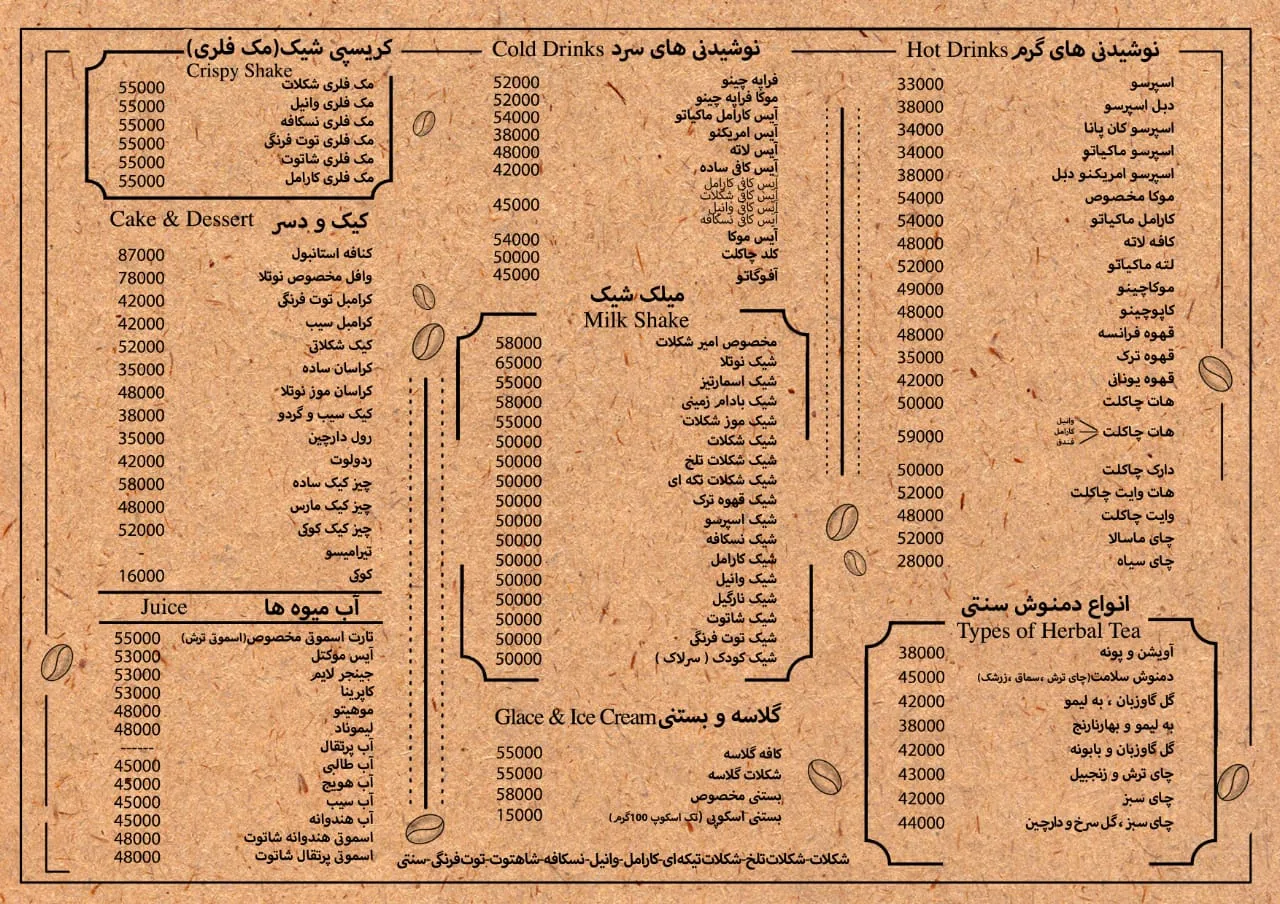 نوشیدنی های گرم Hot Drinks
اسپرسو 33000
دبل اسپرسو 38000
اسپرسو کان پانا 34000
اسپرسو ماکیاتو 34000
اسپرسو امریکنو دبل 38000
موکا مخصوص 54000
کارامل ماکیاتو 54000
کافه لاته 48000
لته ماکیاتو 52000
موکاچینو 49000
کاپوچینو 48000
قهوه فرانسه 48000
قهوه ترک 35000
قهوه یونانی 42000
هات چاکلت 50000
هات چاکلت وانیل کارامل فندق 59000
دارک چاکلت 50000
هات وایت چاکلت 52000
وایت چاکلت 48000
چای ماسالا 52000
چای سیاه 28000
انواع دمنوش سنتی
Types of Herbal Tea
آویشن و پونه 38000
دمنوش سلامت(چای ترش ،سماق ،زرشک) 45000
گل گاوزبان ، به لیمو 42000
به لیمو و بهارنارنج 38000
گل گاوزبان و بابونه 42000
چای ترش و زنجبیل 43000
چای سبز 42000
چای سبز ،گل سرخ و دارچین 44000
نوشیدنی های سرد Cold Drinks
فراپه چینو 52000
موکا فراپه چینو 52000
آیس کارامل ماکیاتو 54000
آیس امریکنو 38000
آیس لاته 48000
آیس کافی ساده 42000
آیس کافی کارامل
آیس کافی شکلات
آیس کافی وانیل 45000
آیس کافی نسکافه
آیس موکا 54000
کلد چاکلت 50000
آفوگاتو 45000
میلک شیک
Milk Shake
مخصوص امیر شکلات 58000
شیک نوتلا 65000
شیک اسمارتیز 55000
شیک بادام زمینی 58000
شیک موز شکلات 55000
شیک شکلات 50000
شیک شکلات تلخ 50000
شیک شکلات تکه ای 50000
شیک قهوه ترک 50000
شیک اسپرسو 50000
شیک نسکافه 50000
شیک کارامل 50000
شیک وانیل 50000
شیک نارگیل 50000
شیک شاتوت 50000
شیک توت فرنگی 50000
شیک کودک ( سرلاک ) 50000
گلاسه و بستنی Glace & Ice Cream
کافه گلاسه 55000
شکلات گلاسه 55000
بستنی مخصوص 58000
بستنی اسکوپی (تک اسکوپ 100گرم) 15000
شکلات-شکلات‌تلخ-شکلات‌تیکه‌ای-کارامل-وانیل-نسکافه-شاهتوت-توت‌فرنگی-سنتی
کریسپی شیک(مک فلری)
Crispy Shake
مک فلری شکلات 55000
مک فلری وانیل 55000
مک فلری نسکافه 55000
مک فلری توت فرنگی 55000
مک فلری شاتوت 55000
مک فلری کارامل 55000
کیک و دسر Cake & Dessert
کنافه استانبول 87000
وافل مخصوص نوتلا 78000
کرامبل توت فرنگی 42000
کرامبل سیب 42000
کیک شکلاتی 52000
کراسان ساده 35000
کراسان موز نوتلا 48000
کیک سیب و گردو 38000
رول دارچین 35000
ردولوت 42000
چیز کیک ساده 58000
چیز کیک مارس 48000
چیز کیک کوکی 52000
تیرامیسو -
کوکی 16000
آب میوه ها Juice
تارت اسموتی مخصوص(اسموتی ترش) 55000
آیس موکتل 53000
جینجر لایم 53000
کاپرینا 53000
موهیتو 48000
لیموناد 48000
آب پرتقال ------
آب طالبی 45000
آب هویج 45000
آب سیب 45000
آب هندوانه 45000
اسموتی هندوانه شاتوت 48000
اسموتی پرتقال شاتوت 48000